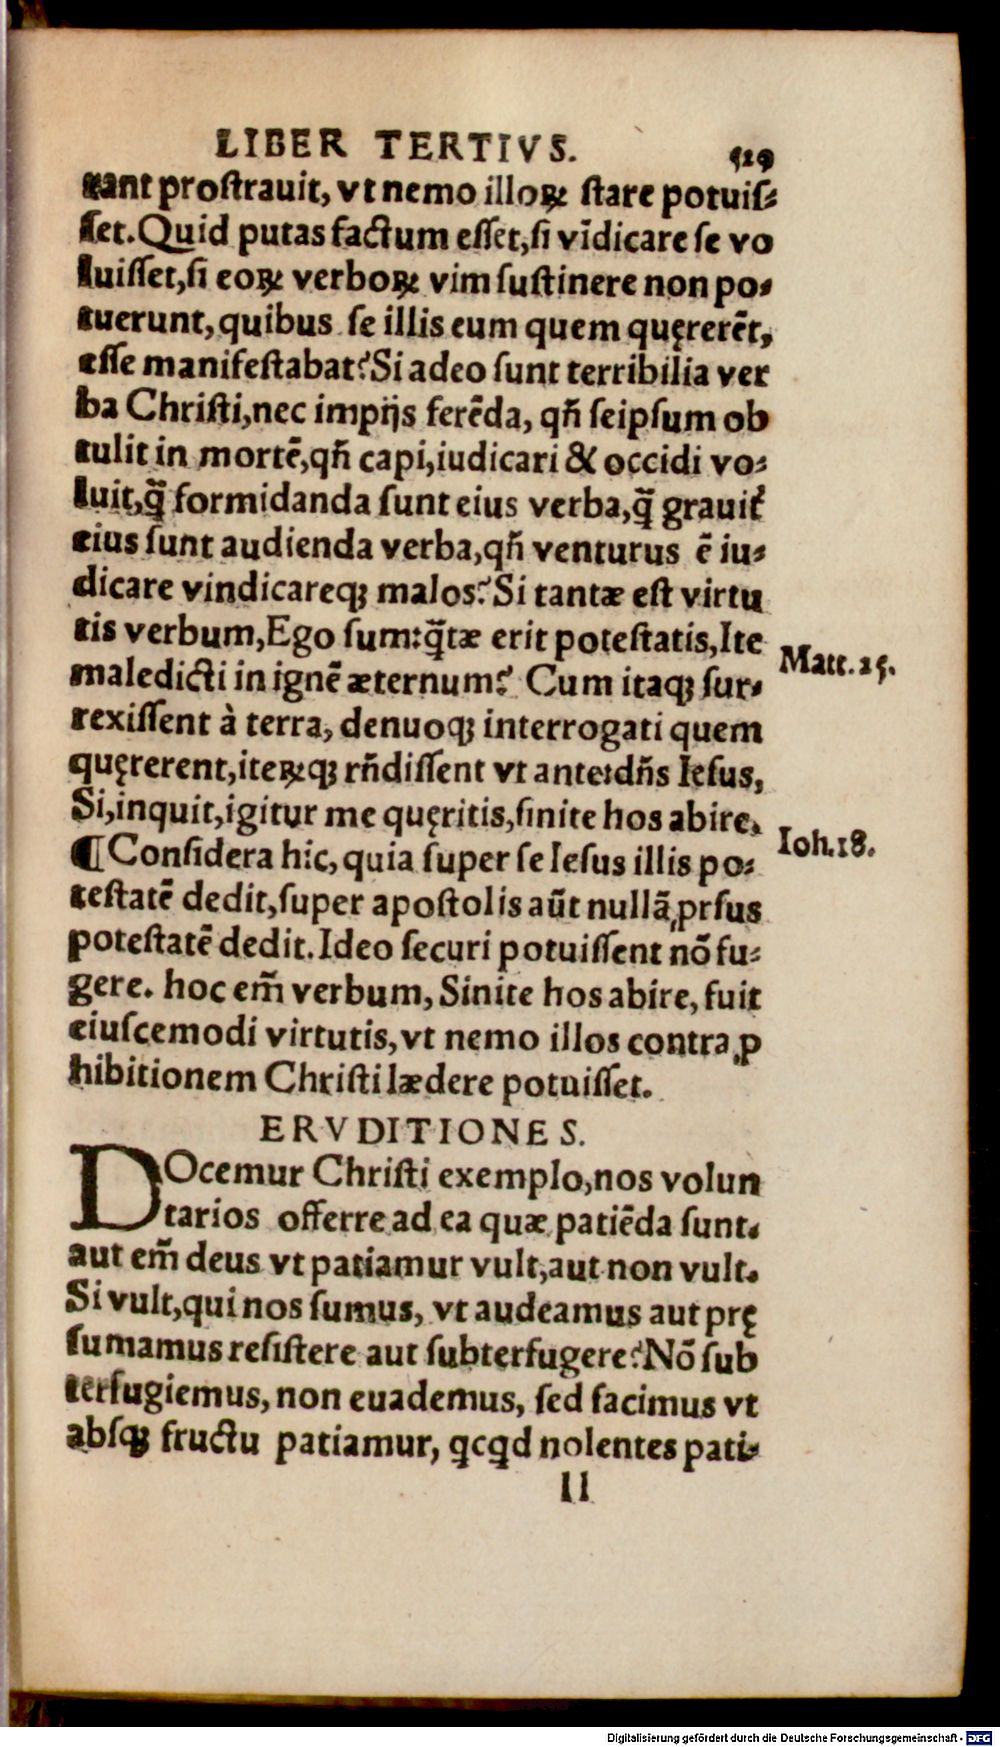 LIBER TERTIVS. 529
rant prostrauit, vt nemo illoꝝ stare potuis-
set. Quid putas factum esset, si vīdicare se vo
luisset, si eoꝝ verboꝝ vim sustinere non po-
tuerunt, quibus se illis eum quem quęrerēt,
esse manifestabat? Si adeo sunt terribilia ver
ba Christi, nec impijs ferēda, qñ seipsum ob
tulit in mortē, qñ capi, iudicari & occidi vo-
luit, q̃ formidanda sunt eius verba, q̃ grauit᷑
eius sunt audienda verba, qñ venturus ē iu-
dicare vindicareqꝫ malos? Si tantæ est virtu
tis verbum, Ego sum: q̃tæ erit potestatis, Ite
maledicti in ignē æternum? Cum itaqꝫ sur-
Matt. 25.
rexissent à terra, denuoqꝫ interrogati quem
quęrerent, iteꝝqꝫ rñdissent vt ante: dñs Iesus,
Si, inquit, igitur me quęritis, sinite hos abire.
Ioh. 18.
¶ Considera hic, quia super se Iesus illis po-
testatē dedit, super apostolis aūt nullā ꝓrsus
potestatē dedit. Ideo securi potuissent nō fu-
gere. hoc em̃ verbum, Sinite hos abire, fuit
eiuscemodi virtutis, vt nemo illos contra ꝓ
hibitionem Christi lædere potuisset.
ERVDITIONES.
DOcemur Christi exemplo, nos volun
tarios offerre ad ea quæ patiēda sunt.
aut em̃ deus vt patiamur vult, aut non vult.
Si vult, qui nos sumus, vt audeamus aut prę
sumamus resistere aut subterfugere? Nō sub
terfugiemus, non euademus, sed facimus vt
absqꝫ fructu patiamur, qͥcqͥd nolentes pati-
ll
Digitalisierung gefördert durch die Deutsche Forschungsgemeinschaft - DFG